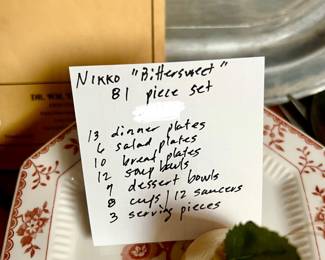 DR. WM.
NIKKO "Bittersweet"
81 piece set
13 dinner plates
6 salad plates
10 bread plates
12 soup bowls
7 dessert bowls
8 cups/12 saucers
3 serving pieces